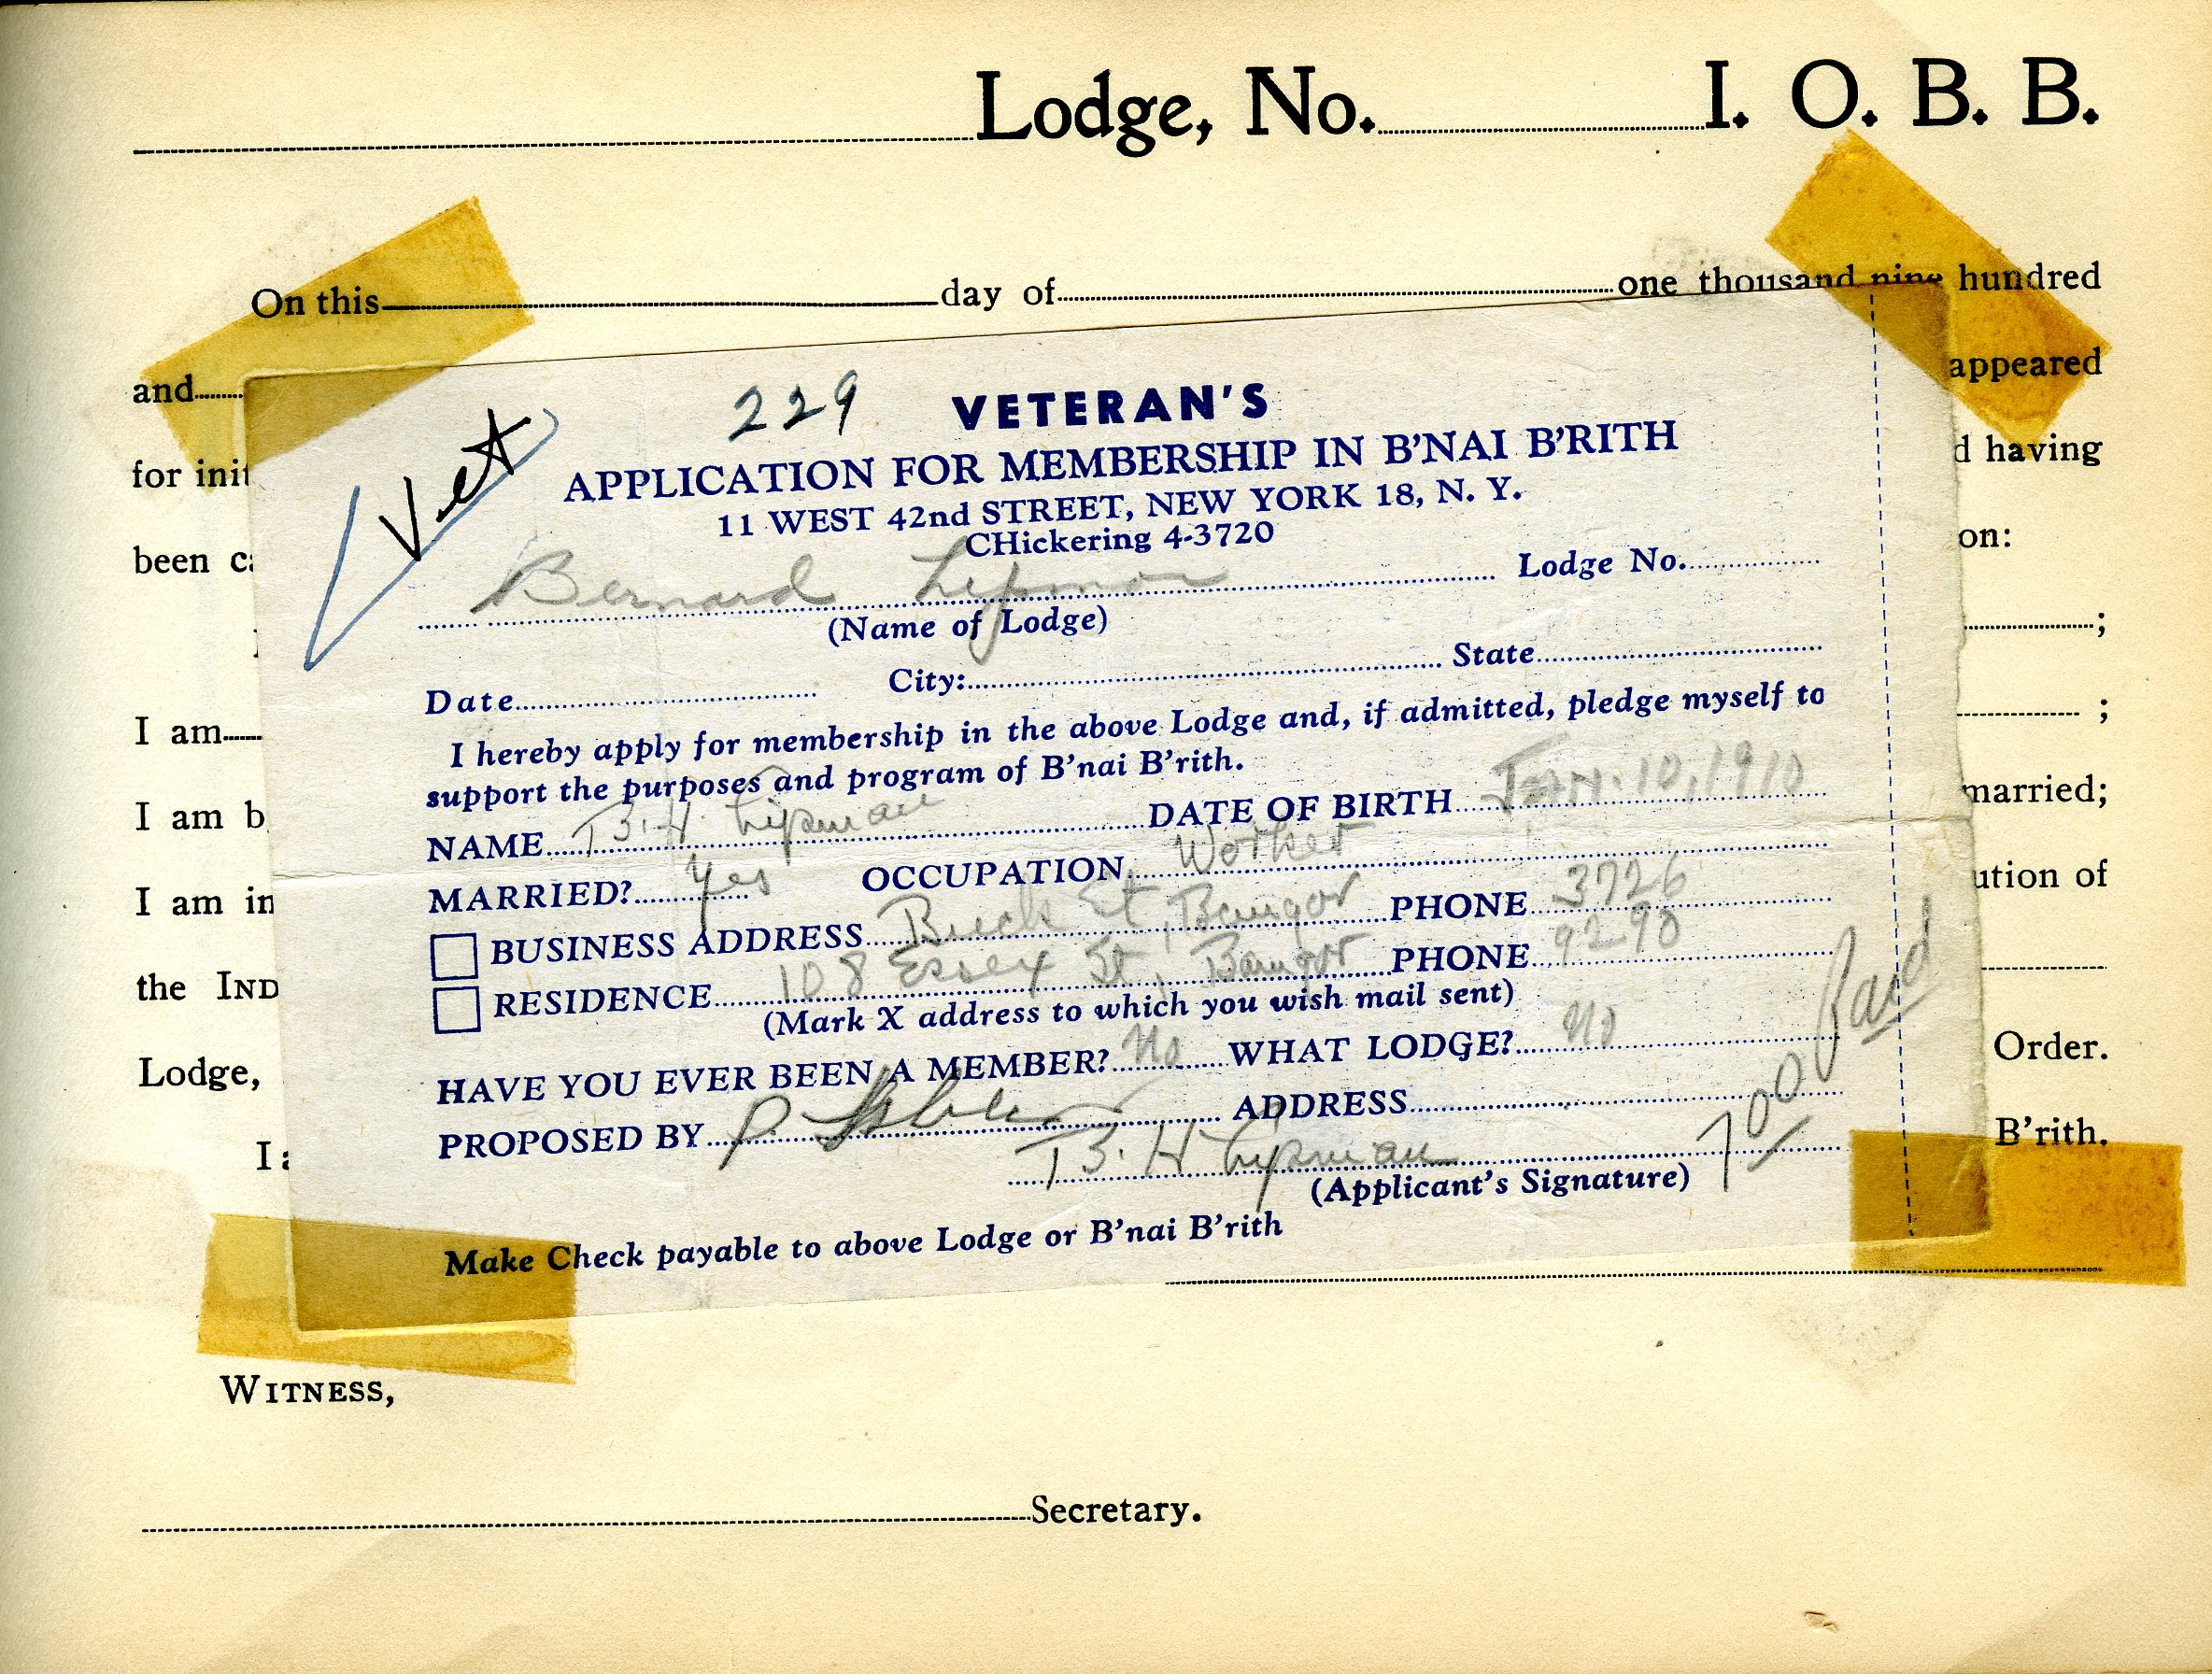 Lodge, No. I. O. B. B.
On this day of one thousand nine hundred
and appeared
for init d having
been ca on:
;
I am ;
I am b married;
I am in ution of
the IND
Lodge, Order.
I a B'rith.
Vet
229
VETERAN'S
APPLICATION FOR MEMBERSHIP IN B'NAI B'RITH
11 WEST 42nd STREET, NEW YORK 18, N. Y.
CHickering 4-3720
Bernard Lipman Lodge No.
(Name of Lodge)
Date City: State
I hereby apply for membership in the above Lodge and, if admitted, pledge myself to
support the purposes and program of B'nai B'rith.
NAME B. H. Lipman DATE OF BIRTH Jan. 10, 1910
MARRIED? Yes OCCUPATION Worker
BUSINESS ADDRESS St, Bangor PHONE 3726
RESIDENCE 108 Essex St, Bangor PHONE 9290
(Mark X address to which you wish mail sent)
HAVE YOU EVER BEEN A MEMBER? No WHAT LODGE? No
PROPOSED BY P ADDRESS
B. H Lipman
(Applicant's Signature)
7 00 Paid
Make Check payable to above Lodge or B'nai B'rith
WITNESS,
Secretary.